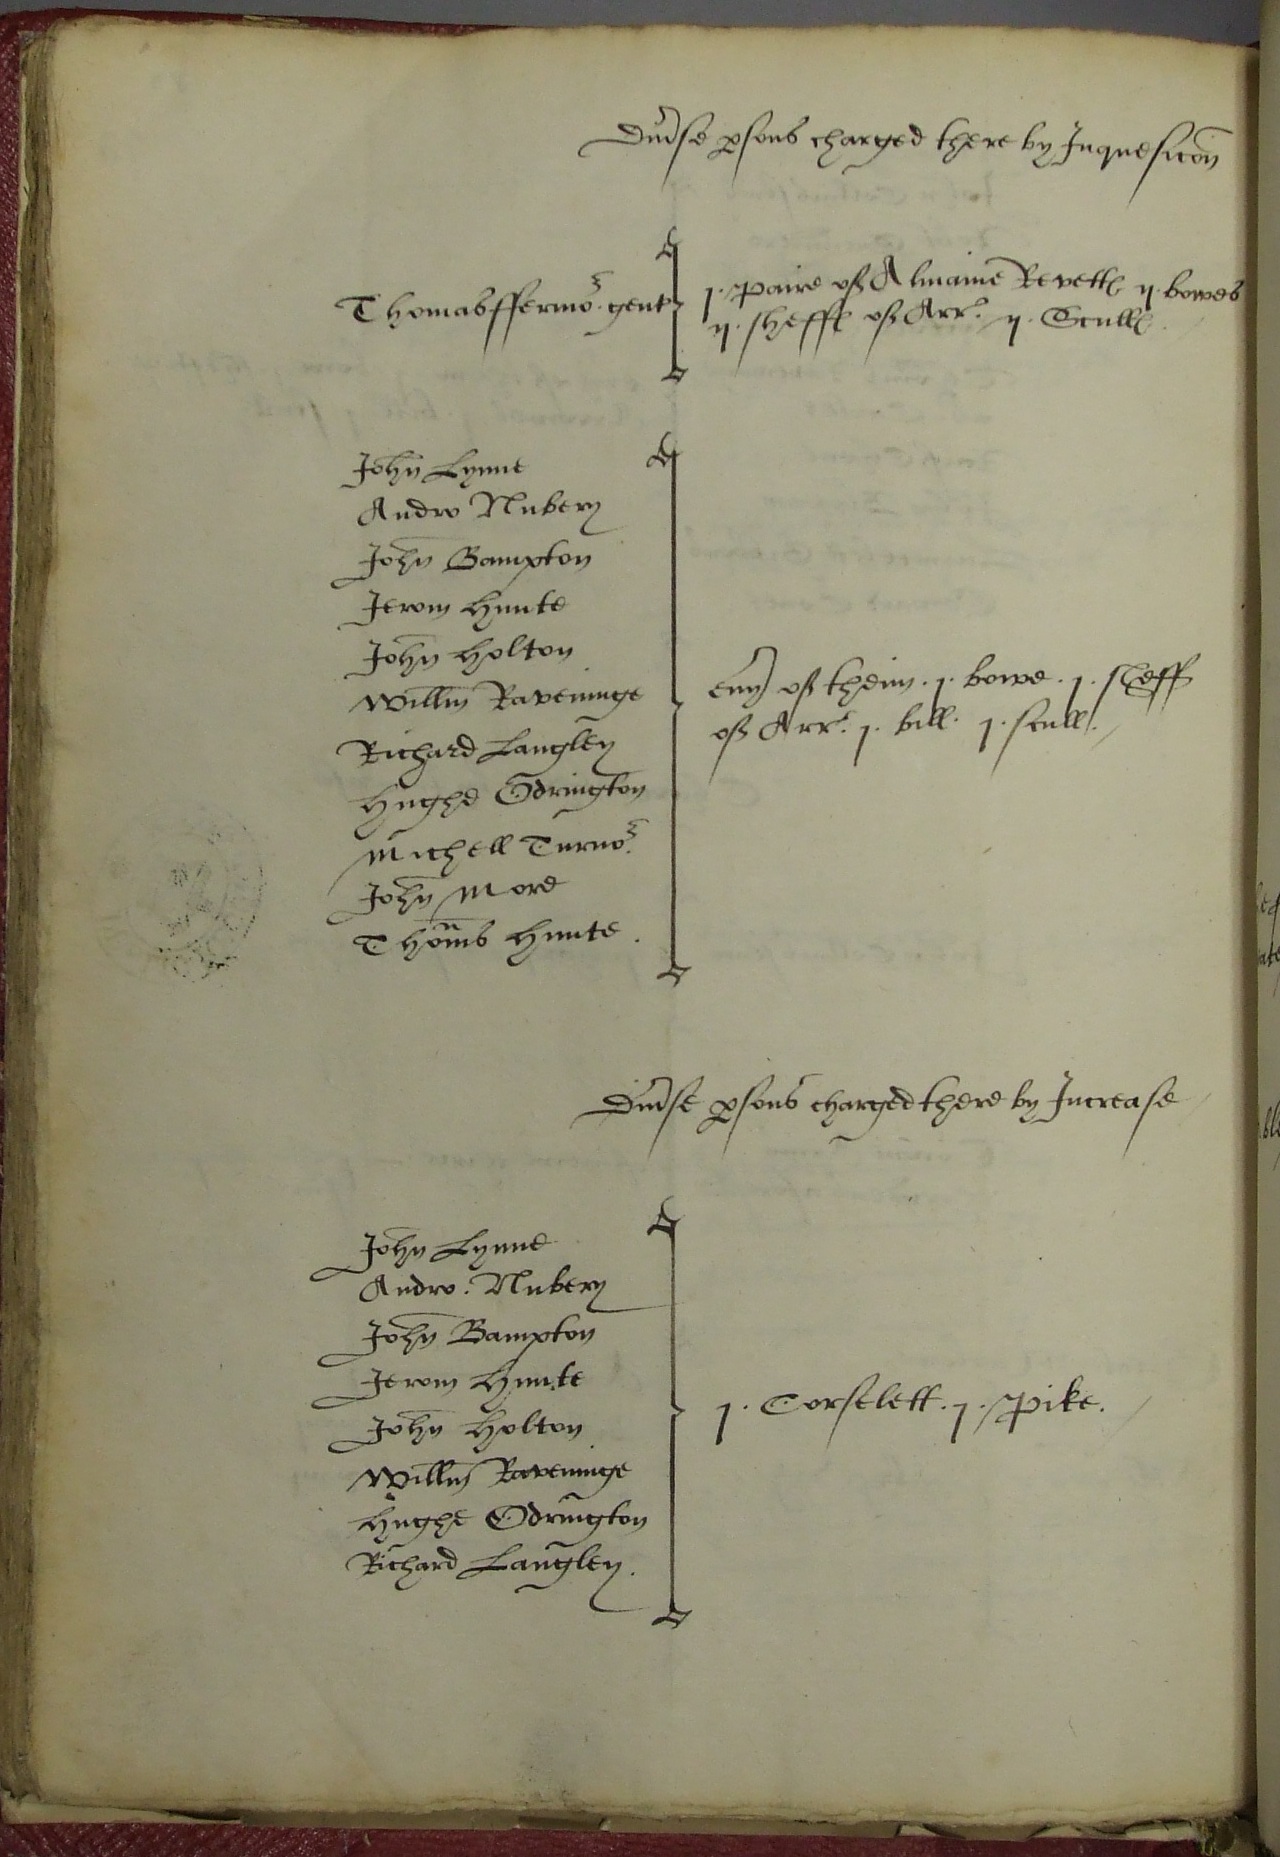 Div'se p'sons charged there by Inquesicon
Thomas ffermor gent
j. paire of Almaine Revett' ij. bowes
ij. sheff' of Arr' ij. Scull'
John Lynne
Andro Nubery
John Bampton
Jerom Hunte
John Holton
Will'm Raveninge
Richard Langley
Hughe Odrington
Michell Turno'r
John More
Thom's Hunte.
ev'y of theim. j. bowe. j. sheff
of Arr' j. bill. j. scull.
Div'se p'sons charged there by Increase
John Lynne
Andro. Nubery
John Bampton
Jerom Hunte
John Holton
Will'm Raveninge
Hughe Odrington
Richard Langley.
j. Corselett. j. pike.